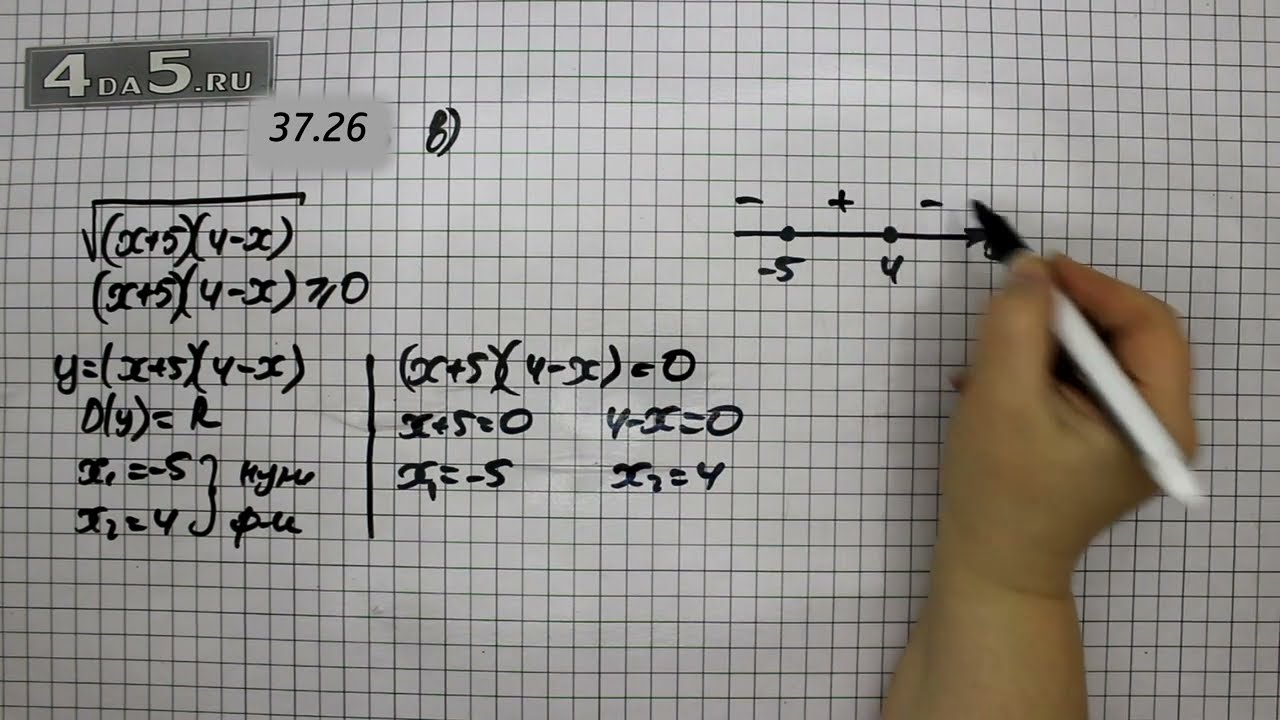 4DA5.RU
37.26 в)
√(x+5)(4-x)
(x+5)(4-x)≥0
y=(x+5)(4-x)
D(y)=R
x₁=-5 } нули
x₂=4 } ф-и
(x+5)(4-x)=0
x+5=0 4-x=0
x₁=-5 x₂=4
- + -
-5 4